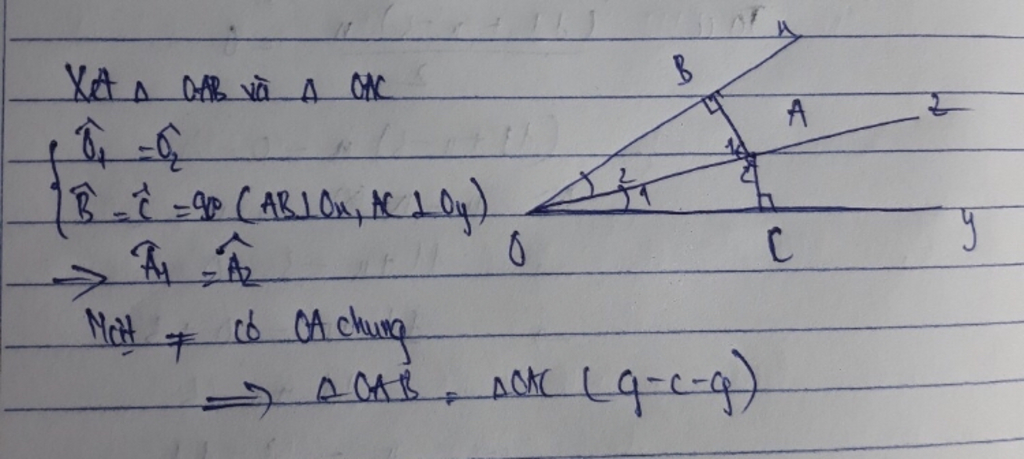 Xét Δ OAB và Δ OAC
Ô₁ = Ô₂
B̂ = Ĉ = 90° (AB ⊥ Ox, AC ⊥ Oy)
⇒ Â₁ = Â₂
Mặt ≠ có OA chung
⇒ ΔOAB = ΔOAC (g-c-g)
x
B
A
z
1
2
2
1
O
C
y